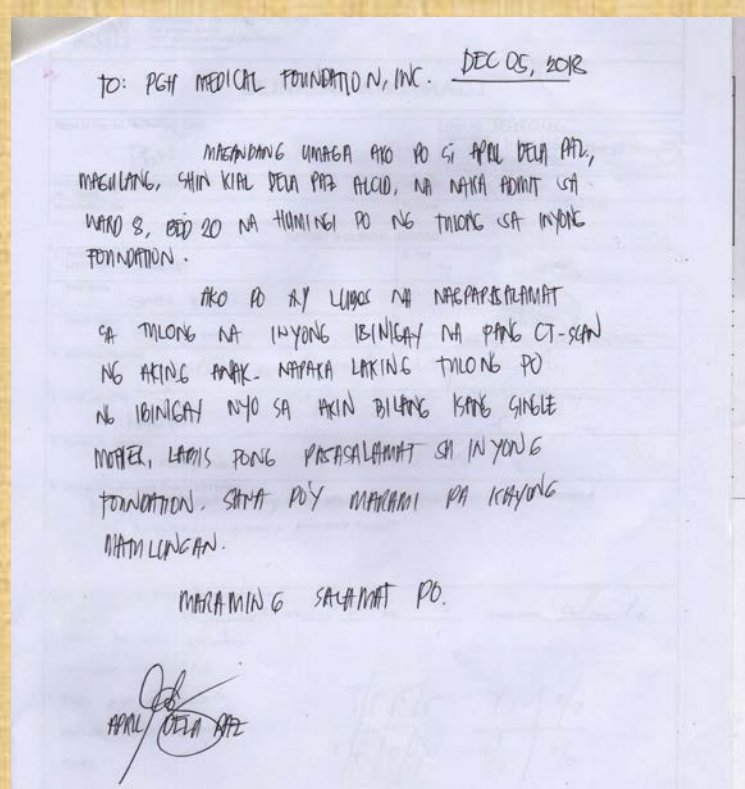 DEC 05, 2018
TO: PGH MEDICAL FOUNDATION, INC.
MAGANDANG UMAGA AKO PO SI APRIL DELA PAZ,
MAGULANG, SHIN KIAL DELA PAZ ALCID, NA NAKA ADMIT SA
WARD 8, BED 20 NA HUMINGI PO NG TULONG SA INYONG
FOUNDATION.
AKO PO AY LUBOS NA NAGPAPASALAMAT
SA TULONG NA INYONG IBINIGAY NA PANG CT-SCAN
NG AKING ANAK. NAPAKA LAKING TULONG PO
NG IBINIGAY NYO SA AKIN BILANG ISANG SINGLE
MOTHER, LABIS PONG PASASALAMAT SA INYONG
FOUNDATION. SANA PO'Y MARAMI PA KAYONG
MATULUNGAN.
MARAMING SALAMAT PO.
APRIL DELA PAZ